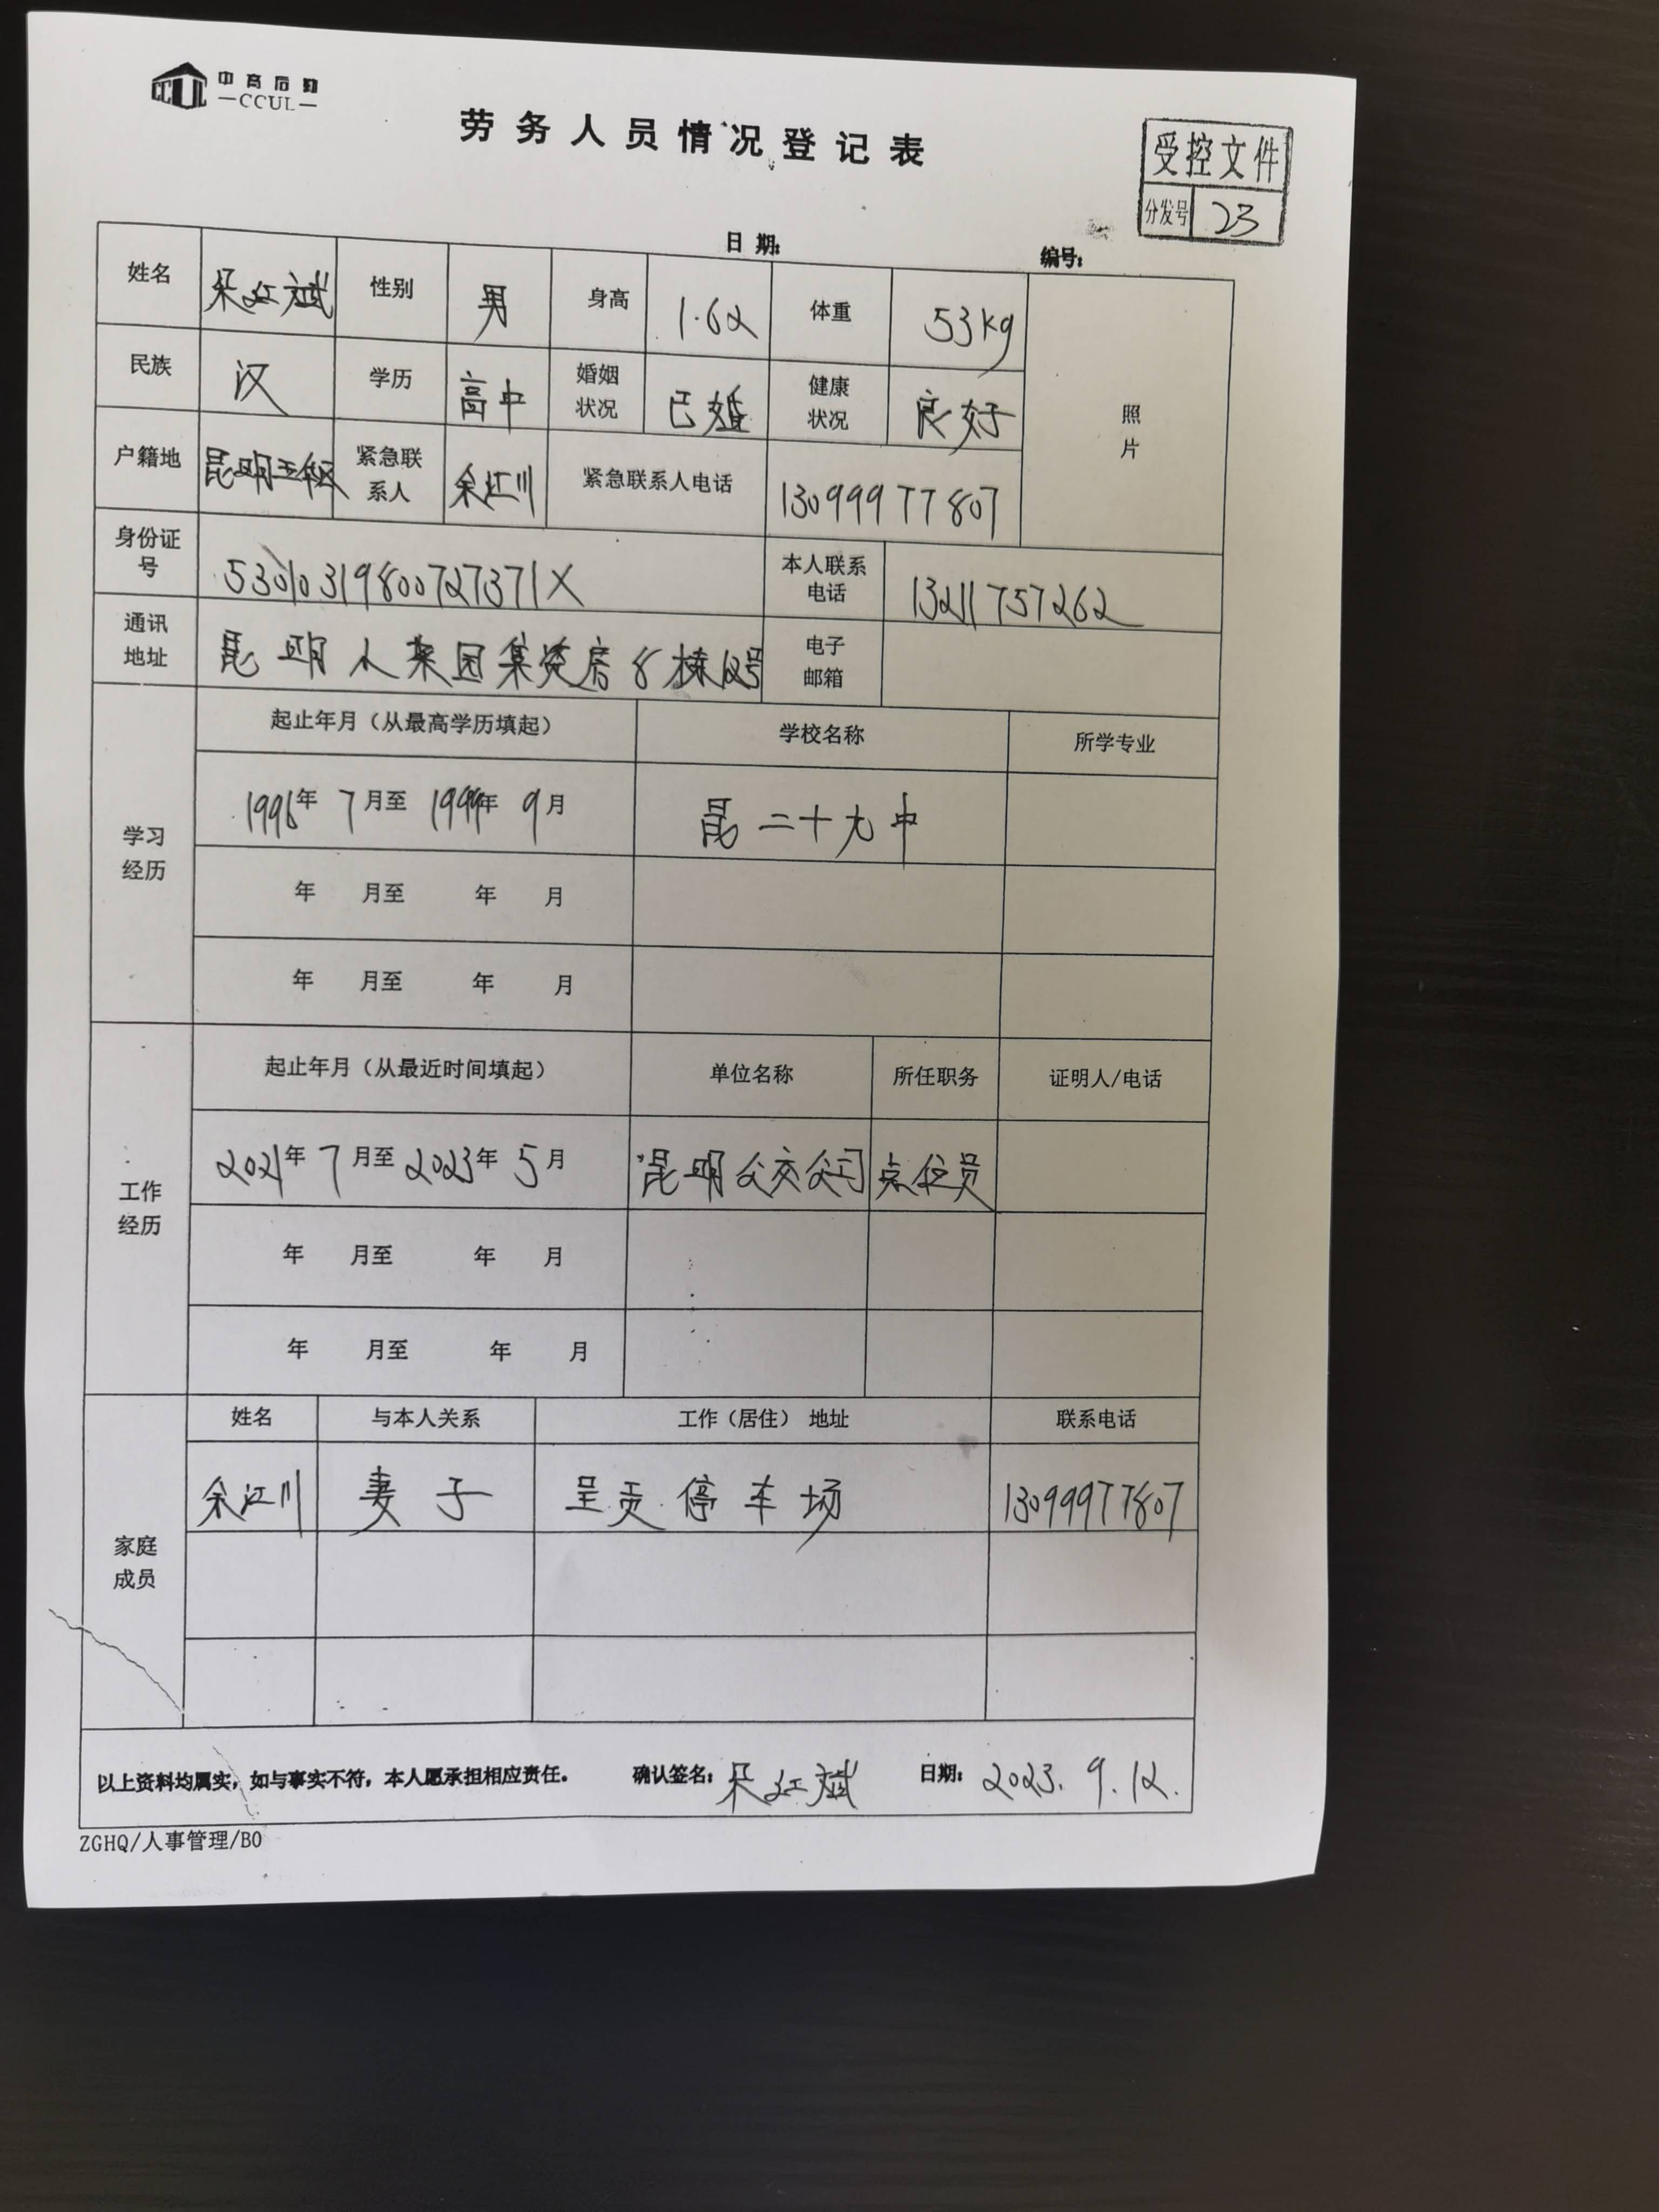 中高后勤
—CCUL—
劳务人员情况登记表
受控文件
分发号 23
日期: 编号:
姓名 朵红斌 性别 男 身高 1.62 体重 53kg 照片
民族 汉 学历 高中 婚姻状况 已婚 健康状况 良好
户籍地 昆明五华区 紧急联系人 余江川 紧急联系人电话 13099977807
身份证号 53010319800727371X 本人联系电话 13211757262
通讯地址 昆明 8栋12号 电子邮箱
学习经历 起止年月（从最高学历填起） 学校名称 所学专业
1996年 7月至 1999年 9月 昆二十九中
年 月至 年 月
年 月至 年 月
工作经历 起止年月（从最近时间填起） 单位名称 所任职务 证明人/电话
2021年 7月至 2023年 5月 昆明公交公司 点位员
年 月至 年 月
年 月至 年 月
家庭成员 姓名 与本人关系 工作（居住） 地址 联系电话
余江川 妻子 呈贡停车场 13099977807
以上资料均属实，如与事实不符，本人愿承担相应责任。 确认签名: 朵红斌 日期: 2023.9.12.
ZGHQ/人事管理/B0